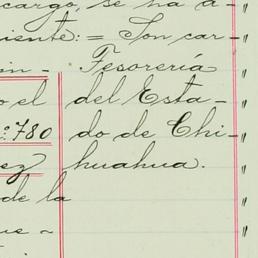 cargo, se ha a-
iente: = Son car-
Tesorería
o el del Esta-
780 do de Chi-
ez huahua.
de la